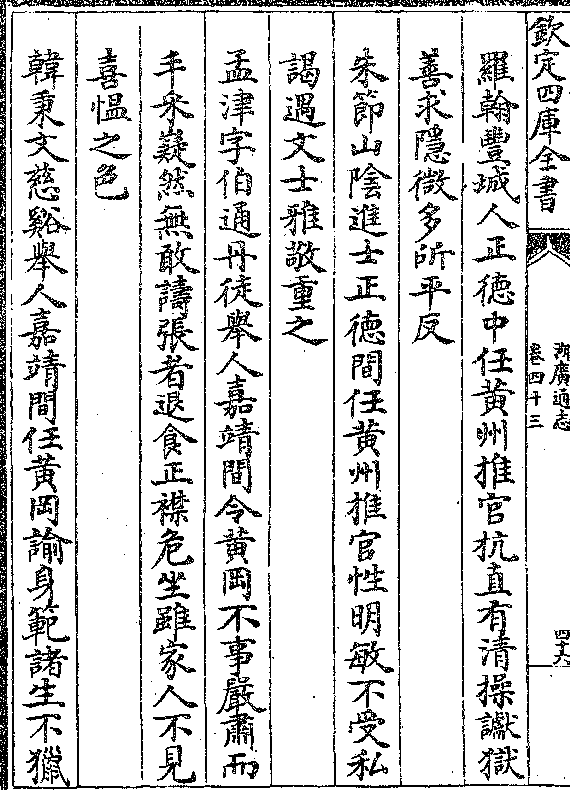 欽定四庫全書
湖廣通志
卷四十三
四十六
羅翰豐城人正德中任黃州推官抗直有清操讞獄
善求隱微多所平反
朱節山陰進士正德間任黃州推官性明敏不受私
謁遇文士雅敬重之
孟津字伯通丹徒舉人嘉靖間令黃岡不事嚴肅而
手永嶷然無敢譸張者退食正襟危坐雖家人不見
喜愠之色
韓秉文慈谿舉人嘉靖間任黃岡諭身範諸生不獵